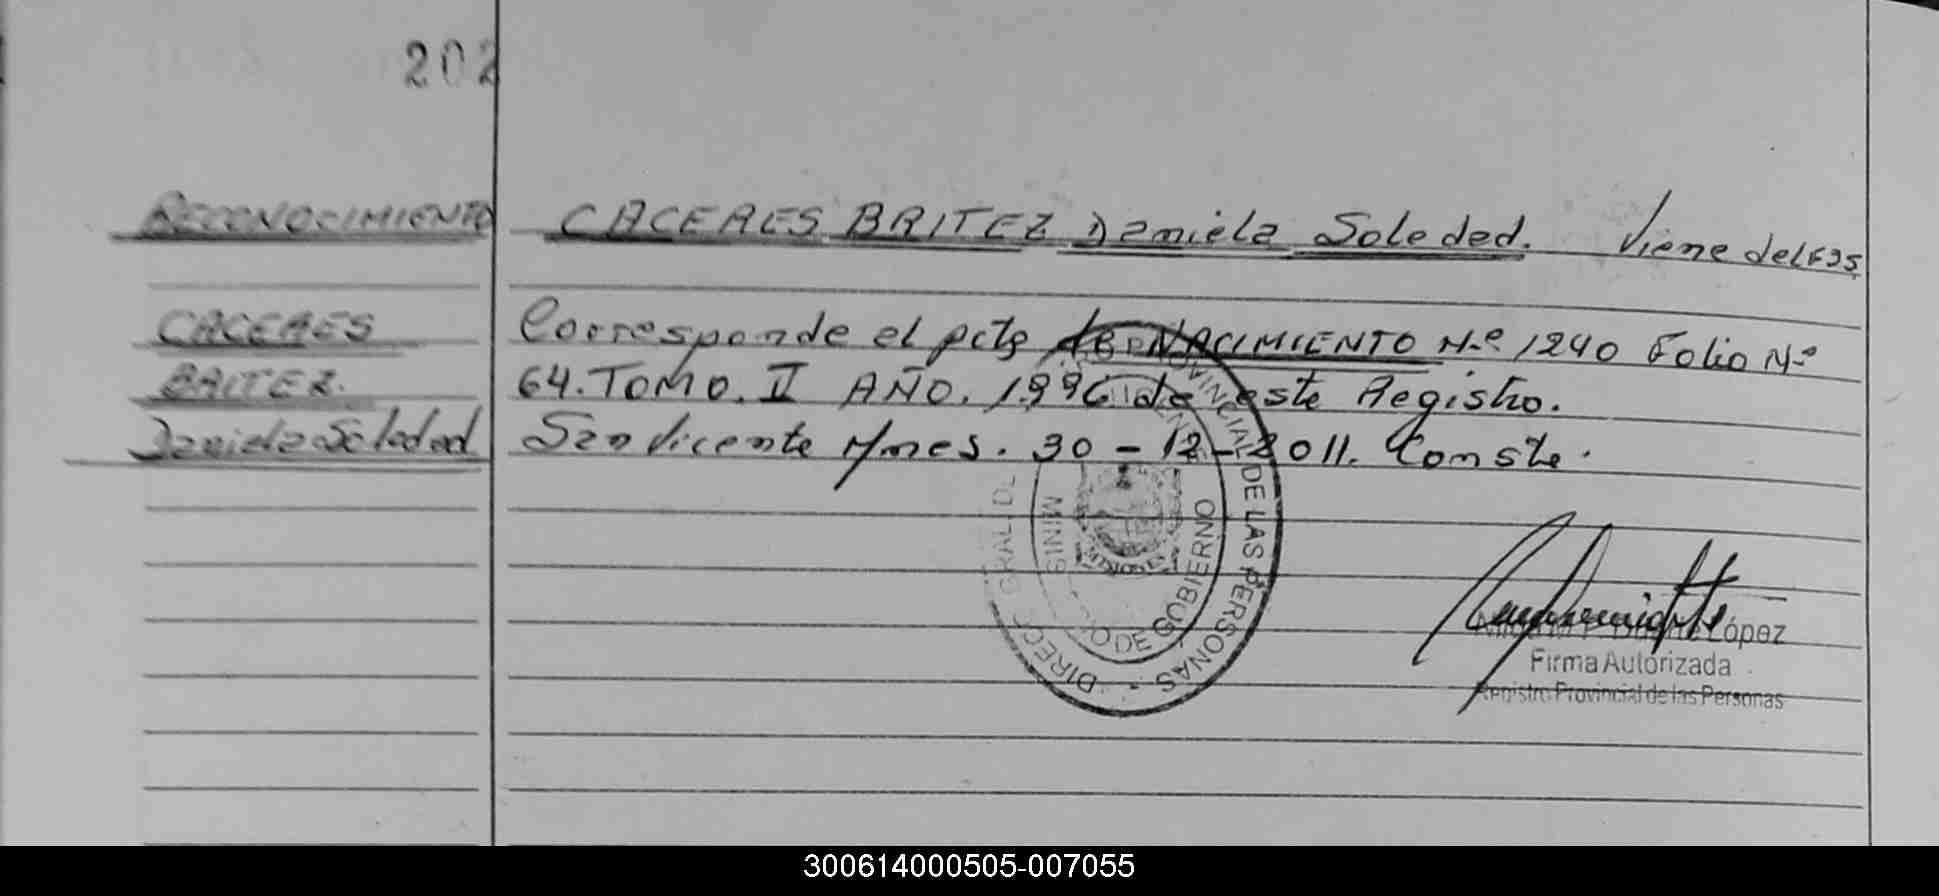 202
RECONOCIMIENTO
CACERES
BRITEZ.
Daniela Soledad
CACERES BRITEZ Daniela Soledad. Viene del F35
Corresponde al acta de NACIMIENTO Nº 1240 Folio Nº
64. TOMO. II AÑO. 1996 de este Registro.
San Vicente Mnes. 30-12-2011. Conste.
DIRECC GRAL DE PROVINCIAL DE LAS PERSONAS
MINIS O DE GOBIERNO
López
Firma Autorizada
Registro Provincial de las Personas
300614000505-007055